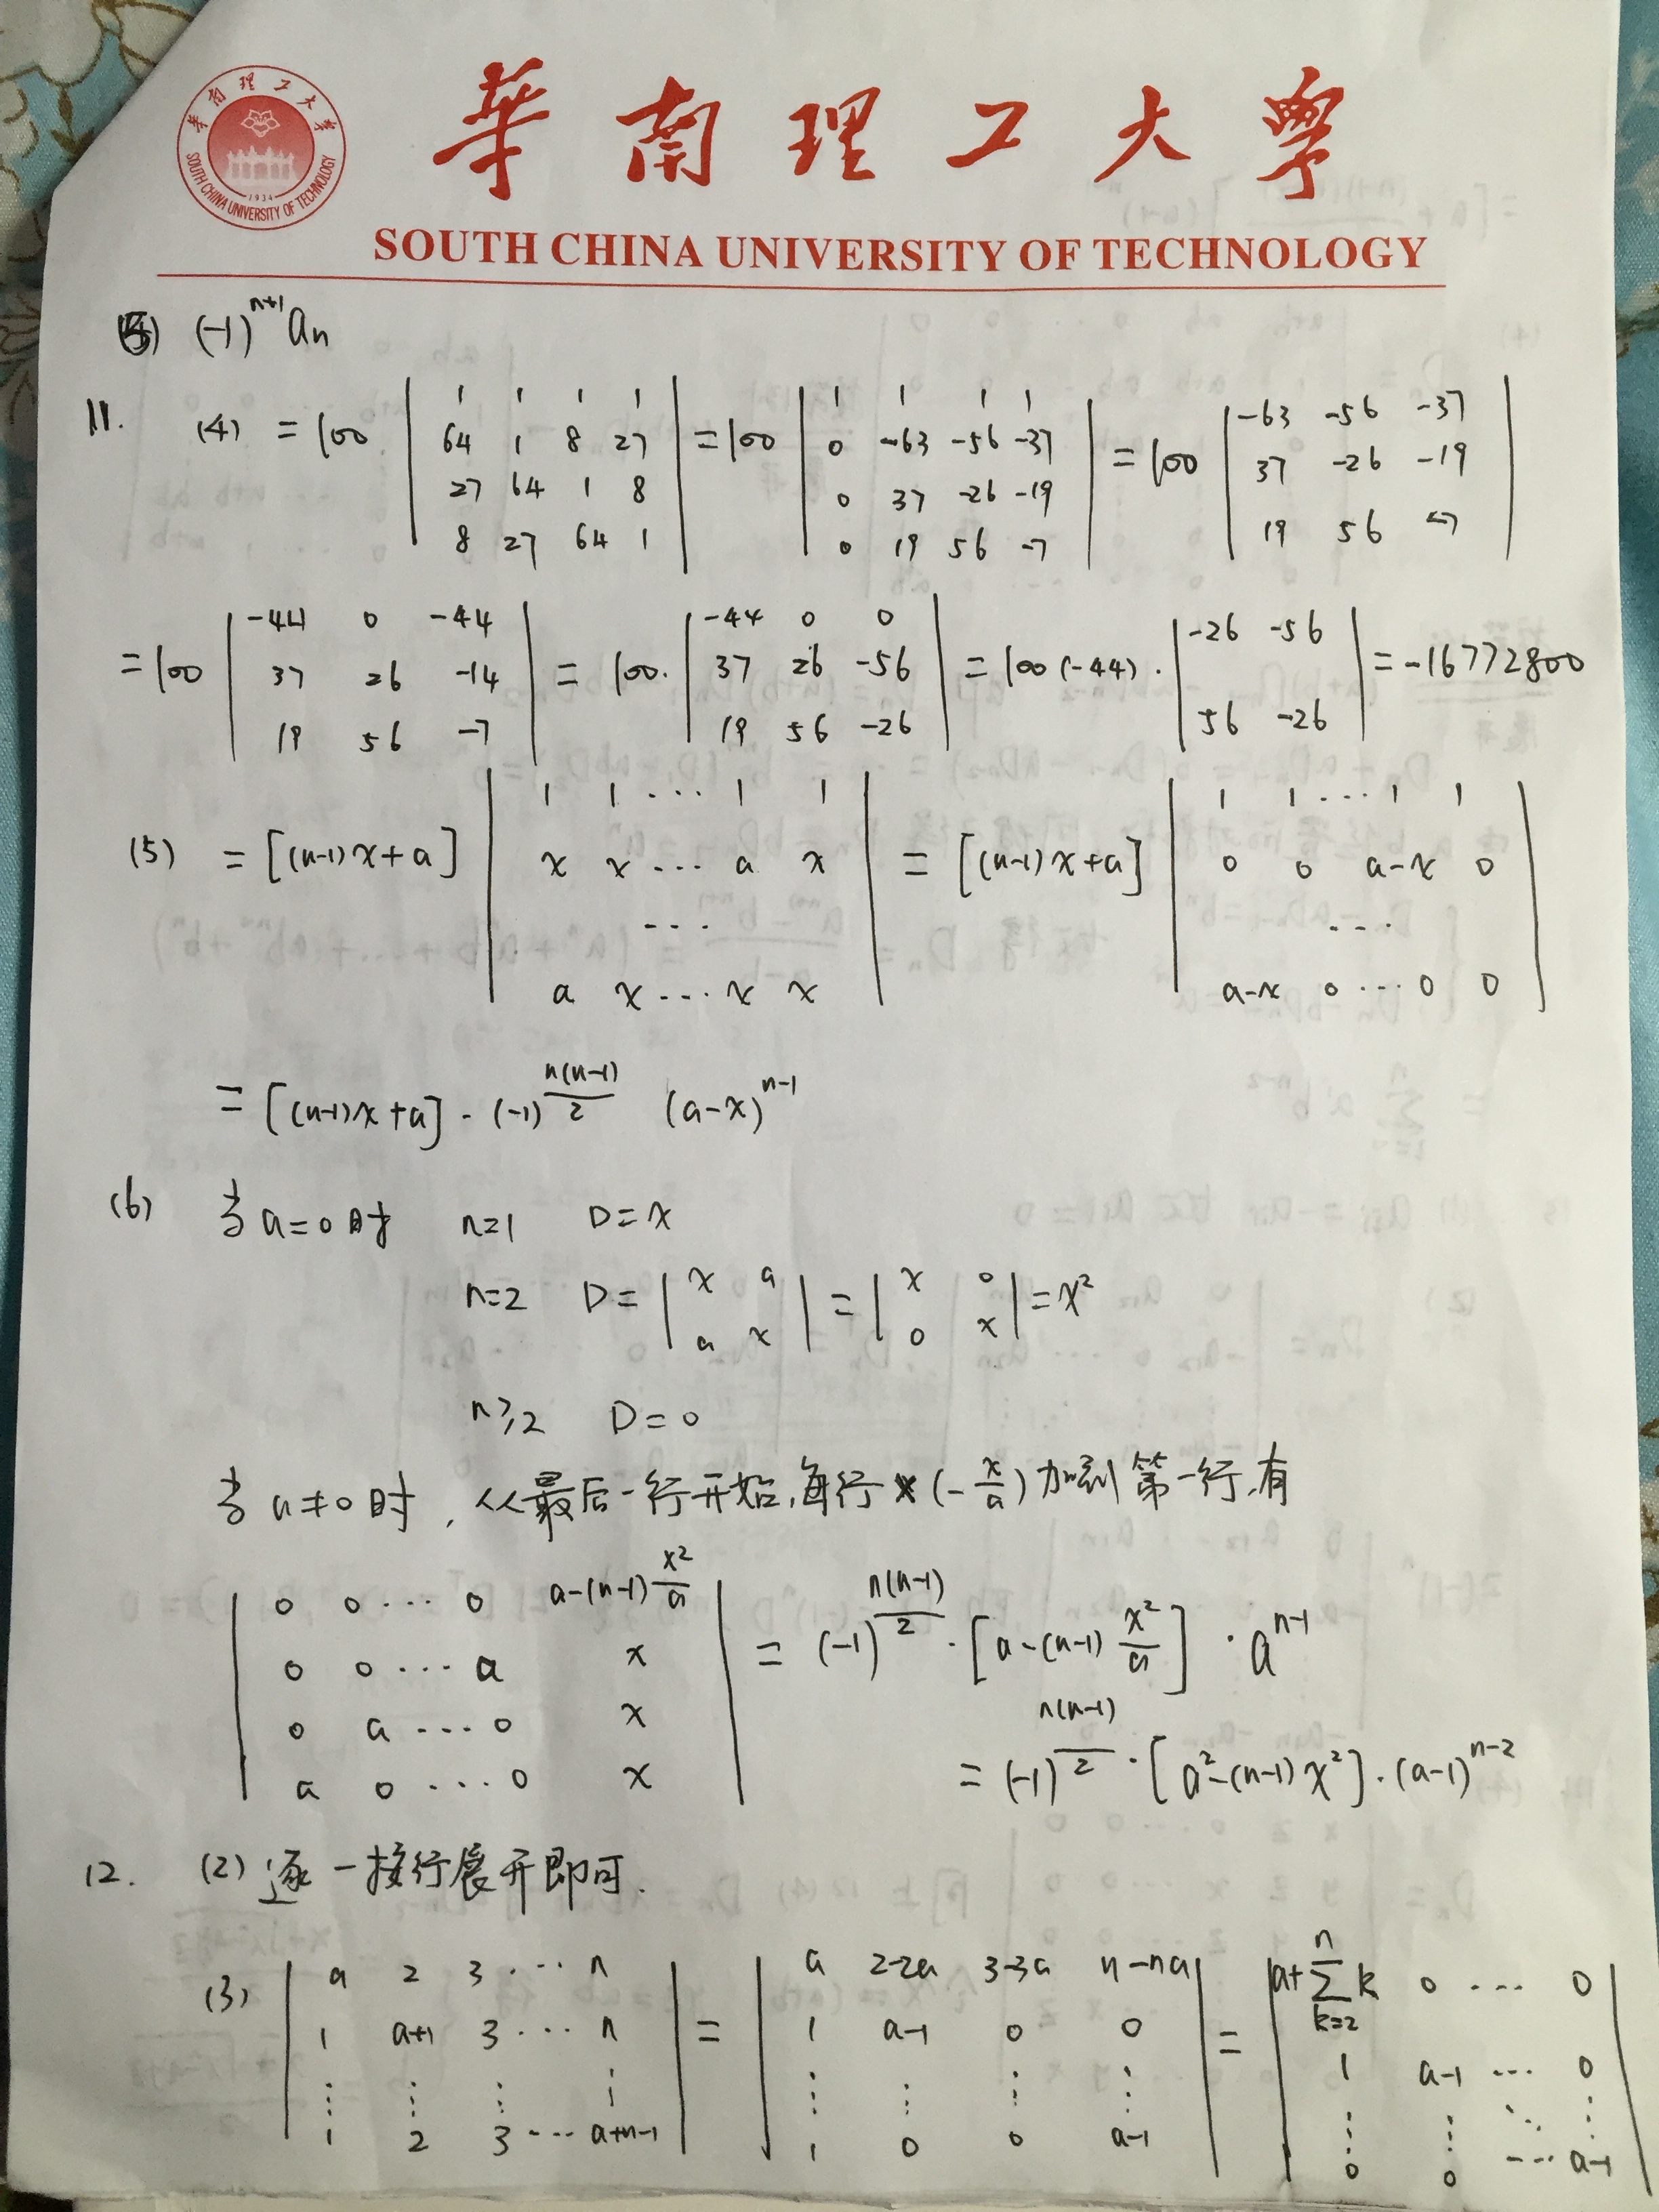 華南理工大學
SOUTH CHINA UNIVERSITY OF TECHNOLOGY
華南理工大學
SOUTH CHINA UNIVERSITY OF TECHNOLOGY
1934
(-1)^{n+1} a_n
11. (4) = 100 | 1 1 1 1 ; 64 1 8 27 ; 27 64 1 8 ; 8 27 64 1 | = 100 | 1 1 1 1 ; 0 -63 -56 -37 ; 0 37 -26 -19 ; 0 19 56 -7 | = 100 | -63 -56 -37 ; 37 -26 -19 ; 19 56 -7 |
= 100 | -44 0 -44 ; 37 26 -14 ; 19 56 -7 | = 100· | -44 0 0 ; 37 26 -56 ; 19 56 -26 | = 100 (-44) · | -26 -56 ; 56 -26 | = -16772800
(5) = [(n-1)x+a] | 1 1 ... 1 1 ; x x ... a x ; ... ; a x ... x x | = [(n-1)x+a] | 1 1 ... 1 1 ; 0 0 a-x 0 ; ... ; a-x 0 ... 0 0 |
= [(n-1)x+a] · (-1)^{n(n-1)/2} (a-x)^{n-1}
(6) 当 a=0 时 n=1 D=x
n=2 D= | x a ; a x | = | x 0 ; 0 x | = x²
n≥2 D=0
当 a≠0 时, 从最后一行开始, 每行 × (-x/a) 加到第一行, 有
| 0 0 ... 0 a-(n-1)x²/a ; 0 0 ... a x ; 0 a ... 0 x ; a 0 ... 0 x | = (-1)^{n(n-1)/2} · [a-(n-1)x²/a] · a^{n-1}
= (-1)^{n(n-1)/2} · [a²-(n-1)x²] · (a-1)^{n-2}
12. (2) 逐一按行展开即可.
(3) | a 2 3 ... n ; 1 a+1 3 ... n ; ⋮ ⋮ ⋮ ⋮ ; 1 2 3 ... a+n-1 | = | a 2-2a 3-3a n-na ; 1 a-1 0 0 ; ⋮ ⋮ ⋮ ⋮ ; 1 0 0 a-1 | = | a+∑_{k=2}^{n} k 0 ... 0 ; 1 a-1 ... 0 ; ⋮ ⋮ ⋱ ⋮ ; 0 0 ... a-1 |